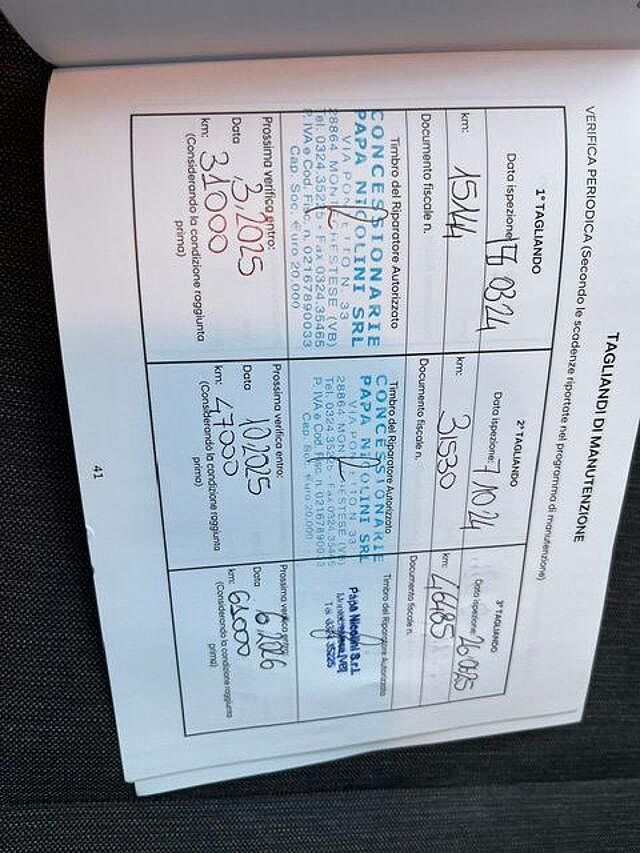 TAGLIANDI DI MANUTENZIONE
VERIFICA PERIODICA (Secondo le scadenze riportate nel programma di manutenzione)
1° TAGLIANDO
Data ispezione: 03 24
km: 15144
Documento fiscale n.
Timbro del Riparatore Autorizzato
CONCESSIONARIE
PAPA NICOLINI SRL
VIA 33
28864 (VB)
Tel. 0324.35225 - Fax 0324.35465
P. IVA e Cod. Fisc. n. 02167890033
Cap. Soc. €uro 20.000
Prossima verifica entro:
Data 3/2025
km: 31000
(Considerando la condizione raggiunta
prima)
2° TAGLIANDO
Data ispezione: 7/10 24
km: 31530
Documento fiscale n.
Timbro del Riparatore Autorizzato
CONCESSIONARIE
PAPA NICOLINI SRL
VIA 33
28864 (VB)
Tel. 0324.35225 - Fax 0324.35465
P. IVA e Cod. Fisc. n. 02167890033
Cap. Soc. €uro 20.000
Prossima verifica entro:
Data 10.2025
km: 47000
(Considerando la condizione raggiunta
prima)
3° TAGLIANDO
Data ispezione:
km: 46485
Documento fiscale n.
Timbro del Riparatore Autorizzato
Papa Nicolini S.r.l.
(VB)
Tel. 0324 35225
Prossima verifica entro:
Data 6 2026
km: 61000
(Considerando la condizione raggiunta
prima)
41